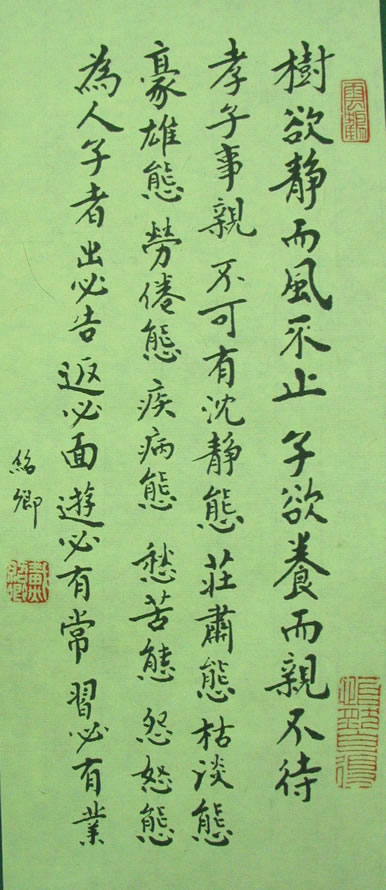 樹欲靜而風不止 子欲養而親不待
孝子事親 不可有沈靜態 莊肅態 枯淡態
豪雄態 勞倦態 疾病態 愁苦態 怨怒態
為人子者出必告 返必面 遊必有常 習必有業
紹卿